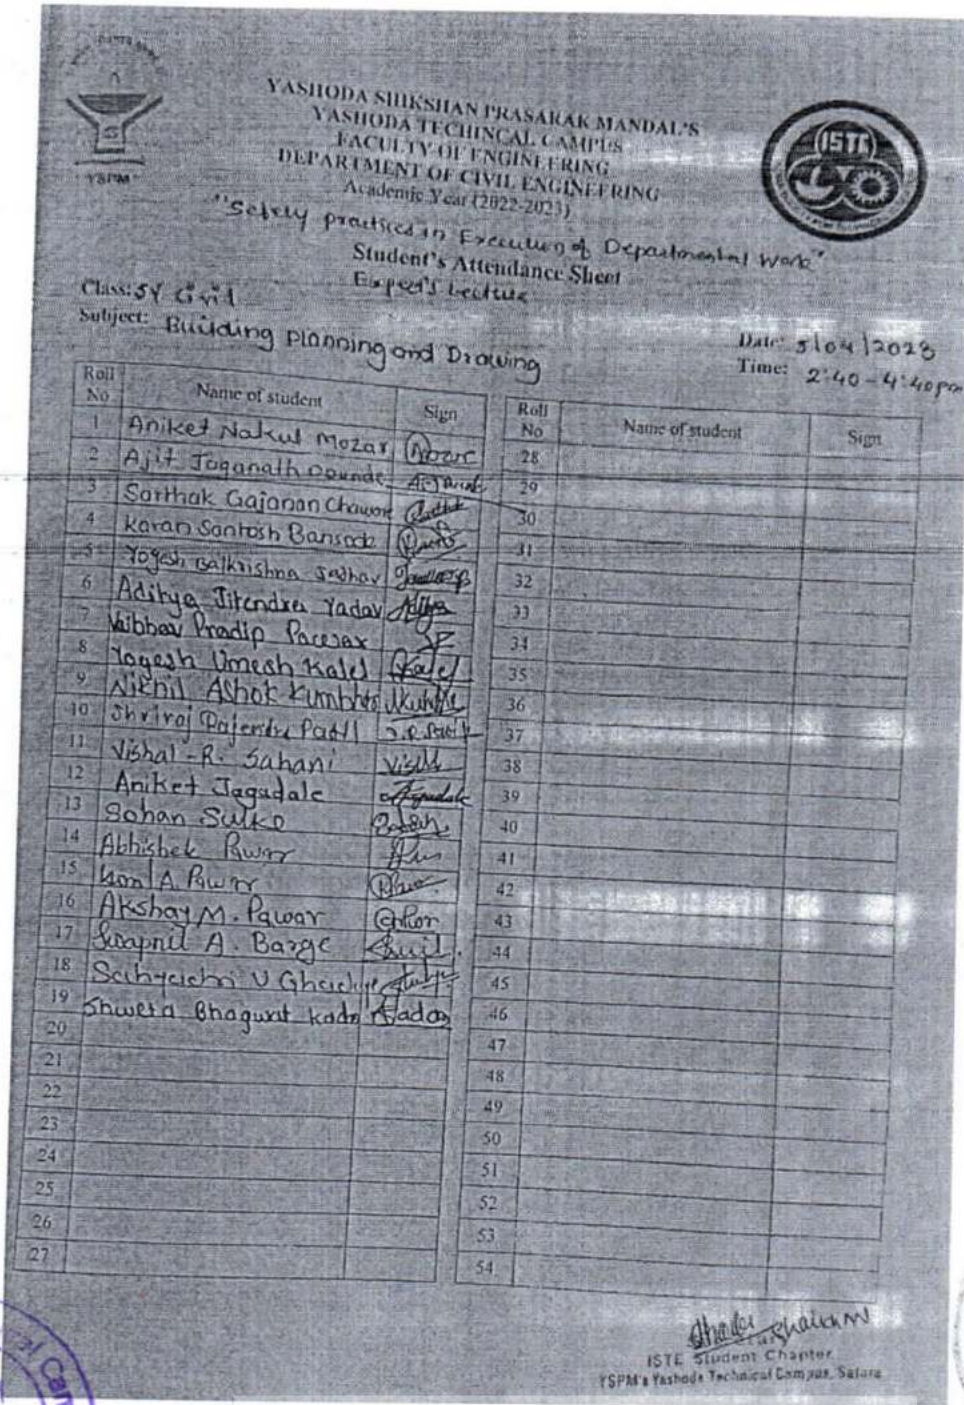 YSPM
ISTE
YASHODA SHIKSHAN PRASARAK MANDAL'S
YASHODA TECHINCAL CAMPUS
FACULTY OF ENGINEERING
DEPARTMENT OF CIVIL ENGINEERING
Academic Year (2022-2023)
"Safety practices in Execution of Departmental Work"
Student's Attendance Sheet
Expert's Lecture
Class: SY Civil
Subject: Building Planning and Drawing
Date: 5/04/2023
Time: 2:40 - 4:40 pm
Roll No Name of student Sign
1 Aniket Nakul Mozar
2 Ajit Jaganath Dounde
3 Sarthak Gajanan Chawore
4 Karan Santosh Bansode
5 Yogesh Balkrishna Jadhav
6 Aditya Jitendra Yadav Aditya
7 Vaibhav Pradip Pacesax
8 Yogesh Umesh Kalel Kalel
9 Nikhil Ashok Kumbhar
10 Shriraj Rajendra Patil S.R. Patil
11 Vishal - R. Sahani
12 Aniket Jagadale Jagadale
13 Sohan Sulke
14 Abhishek Pawar
15 A. Pawar
16 Akshay M. Pawar
17 Swapnil A. Barge
18 Sahyadri V Ghadge
19 Shweta Bhagwat Kada
20
21
22
23
24
25
26
27
Roll No Name of student Sign
28
29
30
31
32
33
34
35
36
37
38
39
40
41
42
43
44
45
46
47
48
49
50
51
52
53
54
ISTE Student Chapter
YSPM's Yashoda Technical Campus, Satara